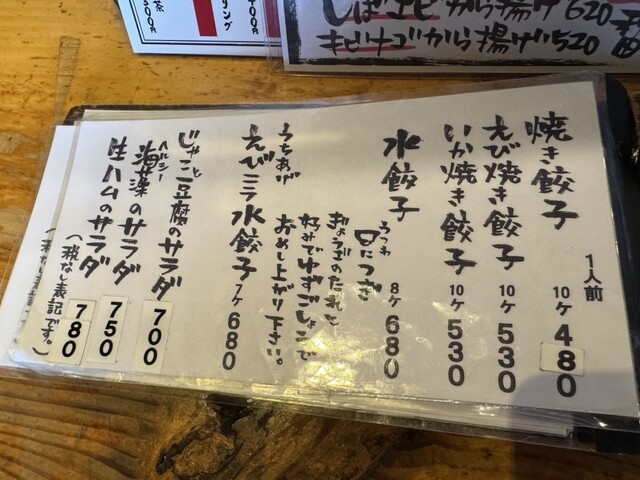 しばエビから揚げ 620
キビナゴから揚げ 520
1人前
焼き餃子 10ケ 480
えび焼き餃子 10ケ 530
いか焼き餃子 10ケ 530
水餃子 8ケ 680
うつわ
皿につぎ
ぎょうざのたれと
好みでゆずごしょこで
おめし上がり下さい。
うちあげ
えびニラ水餃子 7ケ 680
じゃこと豆腐のサラダ 700
ヘルシー
海藻のサラダ 750
生ハムのサラダ 780
(税なし表記です。)